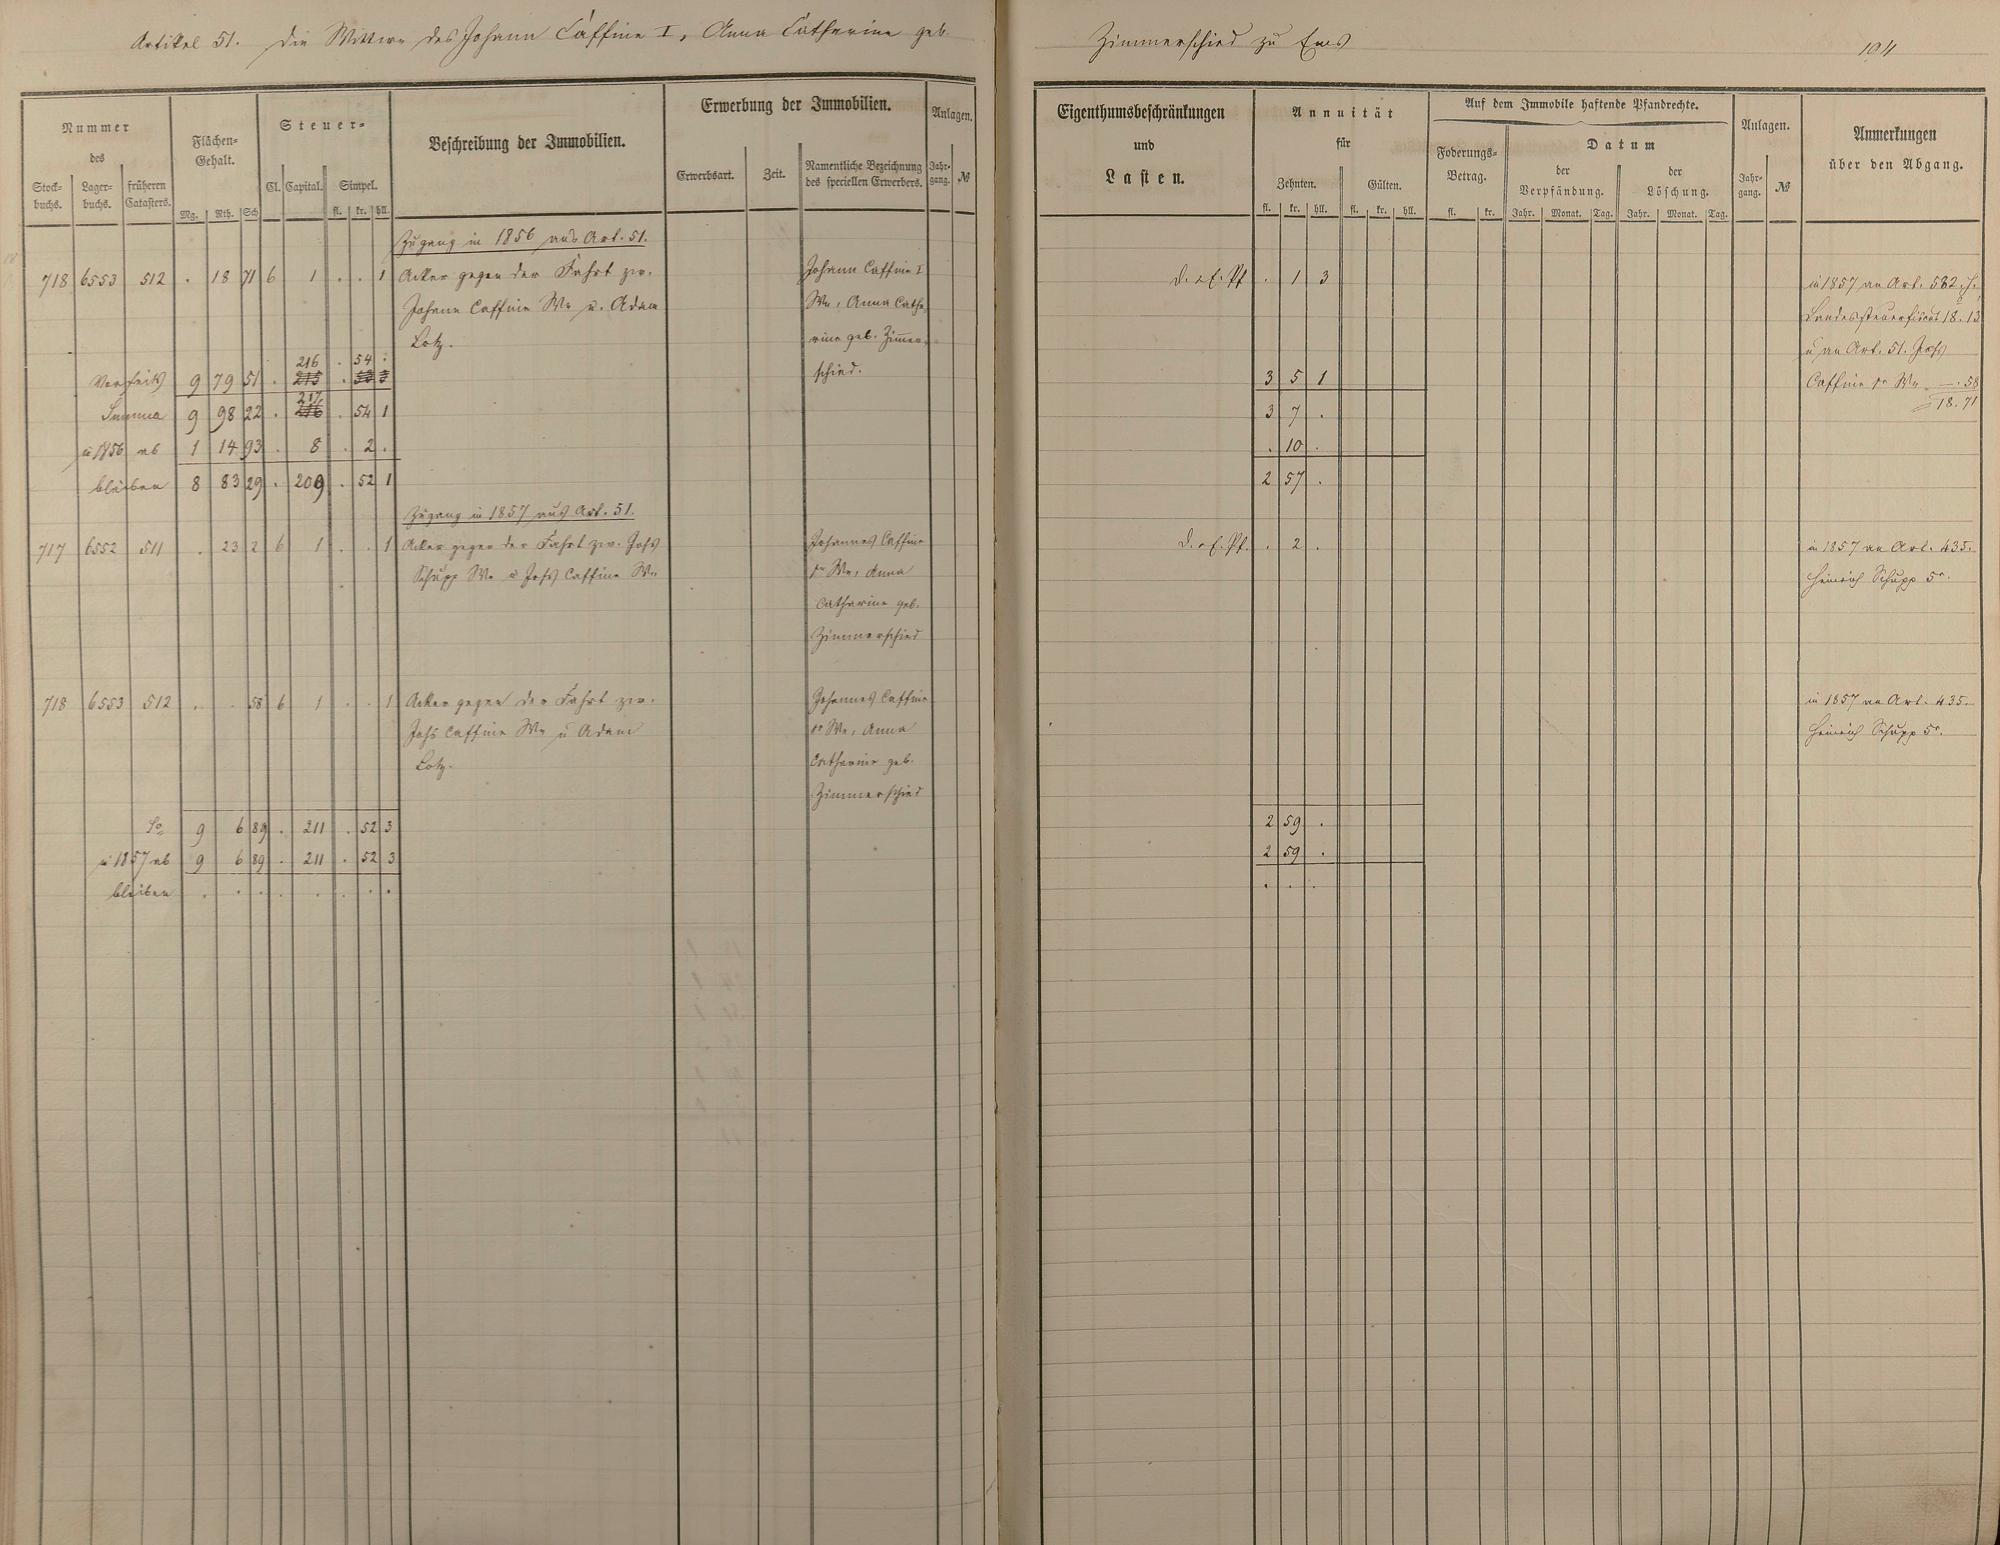 Artikel 51. Die Wittwe des Johann Caffine I, Anna Catharine geb.
Zimmerschied zu Ems
194
Nummer
des
Stock-
buchs.
Lager-
buchs.
früheren
Catasters.
Flächen-
Gehalt.
Mg. Rth. Sch
Steuer-
Cl. Capital. Simpel.
fl. kr. hll.
Beschreibung der Immobilien.
Erwerbung der Immobilien.
Erwerbsart. Zeit.
Namentliche Bezeichnung
des speciellen Erwerbers.
Anlagen.
Jahr-
gang. №
Eigenthumsbeschränkungen
und
Lasten.
Annuität
für
Zehnten. Gülten.
fl. kr. hll. fl. kr. hll.
Auf dem Immobile haftende Pfandrechte.
Foderungs-
Betrag.
fl. kr.
Datum
der
Verpfändung.
Jahr. Monat. Tag.
der
Löschung.
Jahr. Monat. Tag.
Anlagen.
Jahr-
gang. №
Anmerkungen
über den Abgang.
Zugang in 1856 aus Art. 51.
718 6553 512 . 18 71 6 1 . . 1 Acker gegen der Fahrt zw.
Johann Caffine We u. Adam
Lotz.
Johann Caffine I
We, Anna Catha-
rine geb. Zimmer-
schied.
. 1 3
in 1857 an Art. 582
Landessteuerfiscus 18. 13
u an Art. 51. Johs
Caffine We —. 58
18. 71
216 . 54 .
9 79 51 . 215 . 53 3
3 5 1
217
Summa 9 98 22 . 216 . 54 1
3 7 .
in 1856 ab 1 14 93 . 8 . 2 .
. 10 .
bleiben 8 83 29 . 209 . 52 1
2 57 .
Zugang in 1857 aus Art. 51.
717 6552 511 . 23 2 6 1 . . 1 Acker gegen der Fahrt zw. Johs
Schupp We u Johs Caffine We
Johannes Caffine
We, Anna
Catharine geb.
Zimmerschied
. 2 .
in 1857 an Art. 435.
Heinrich Schupp 5r.
718 6553 512 . . 58 6 1 . . 1 Acker gegen der Fahrt zw.
Johs Caffine We u Adam
Lotz.
Johannes Caffine
We, Anna
Catharine geb.
Zimmerschied
in 1857 an Art. 435.
Heinrich Schupp 5r.
Sa 9 6 89 . 211 . 52 3
2 59 .
in 1857 ab 9 6 89 . 211 . 52 3
2 59 .
bleiben . . . . . . . .
. . .